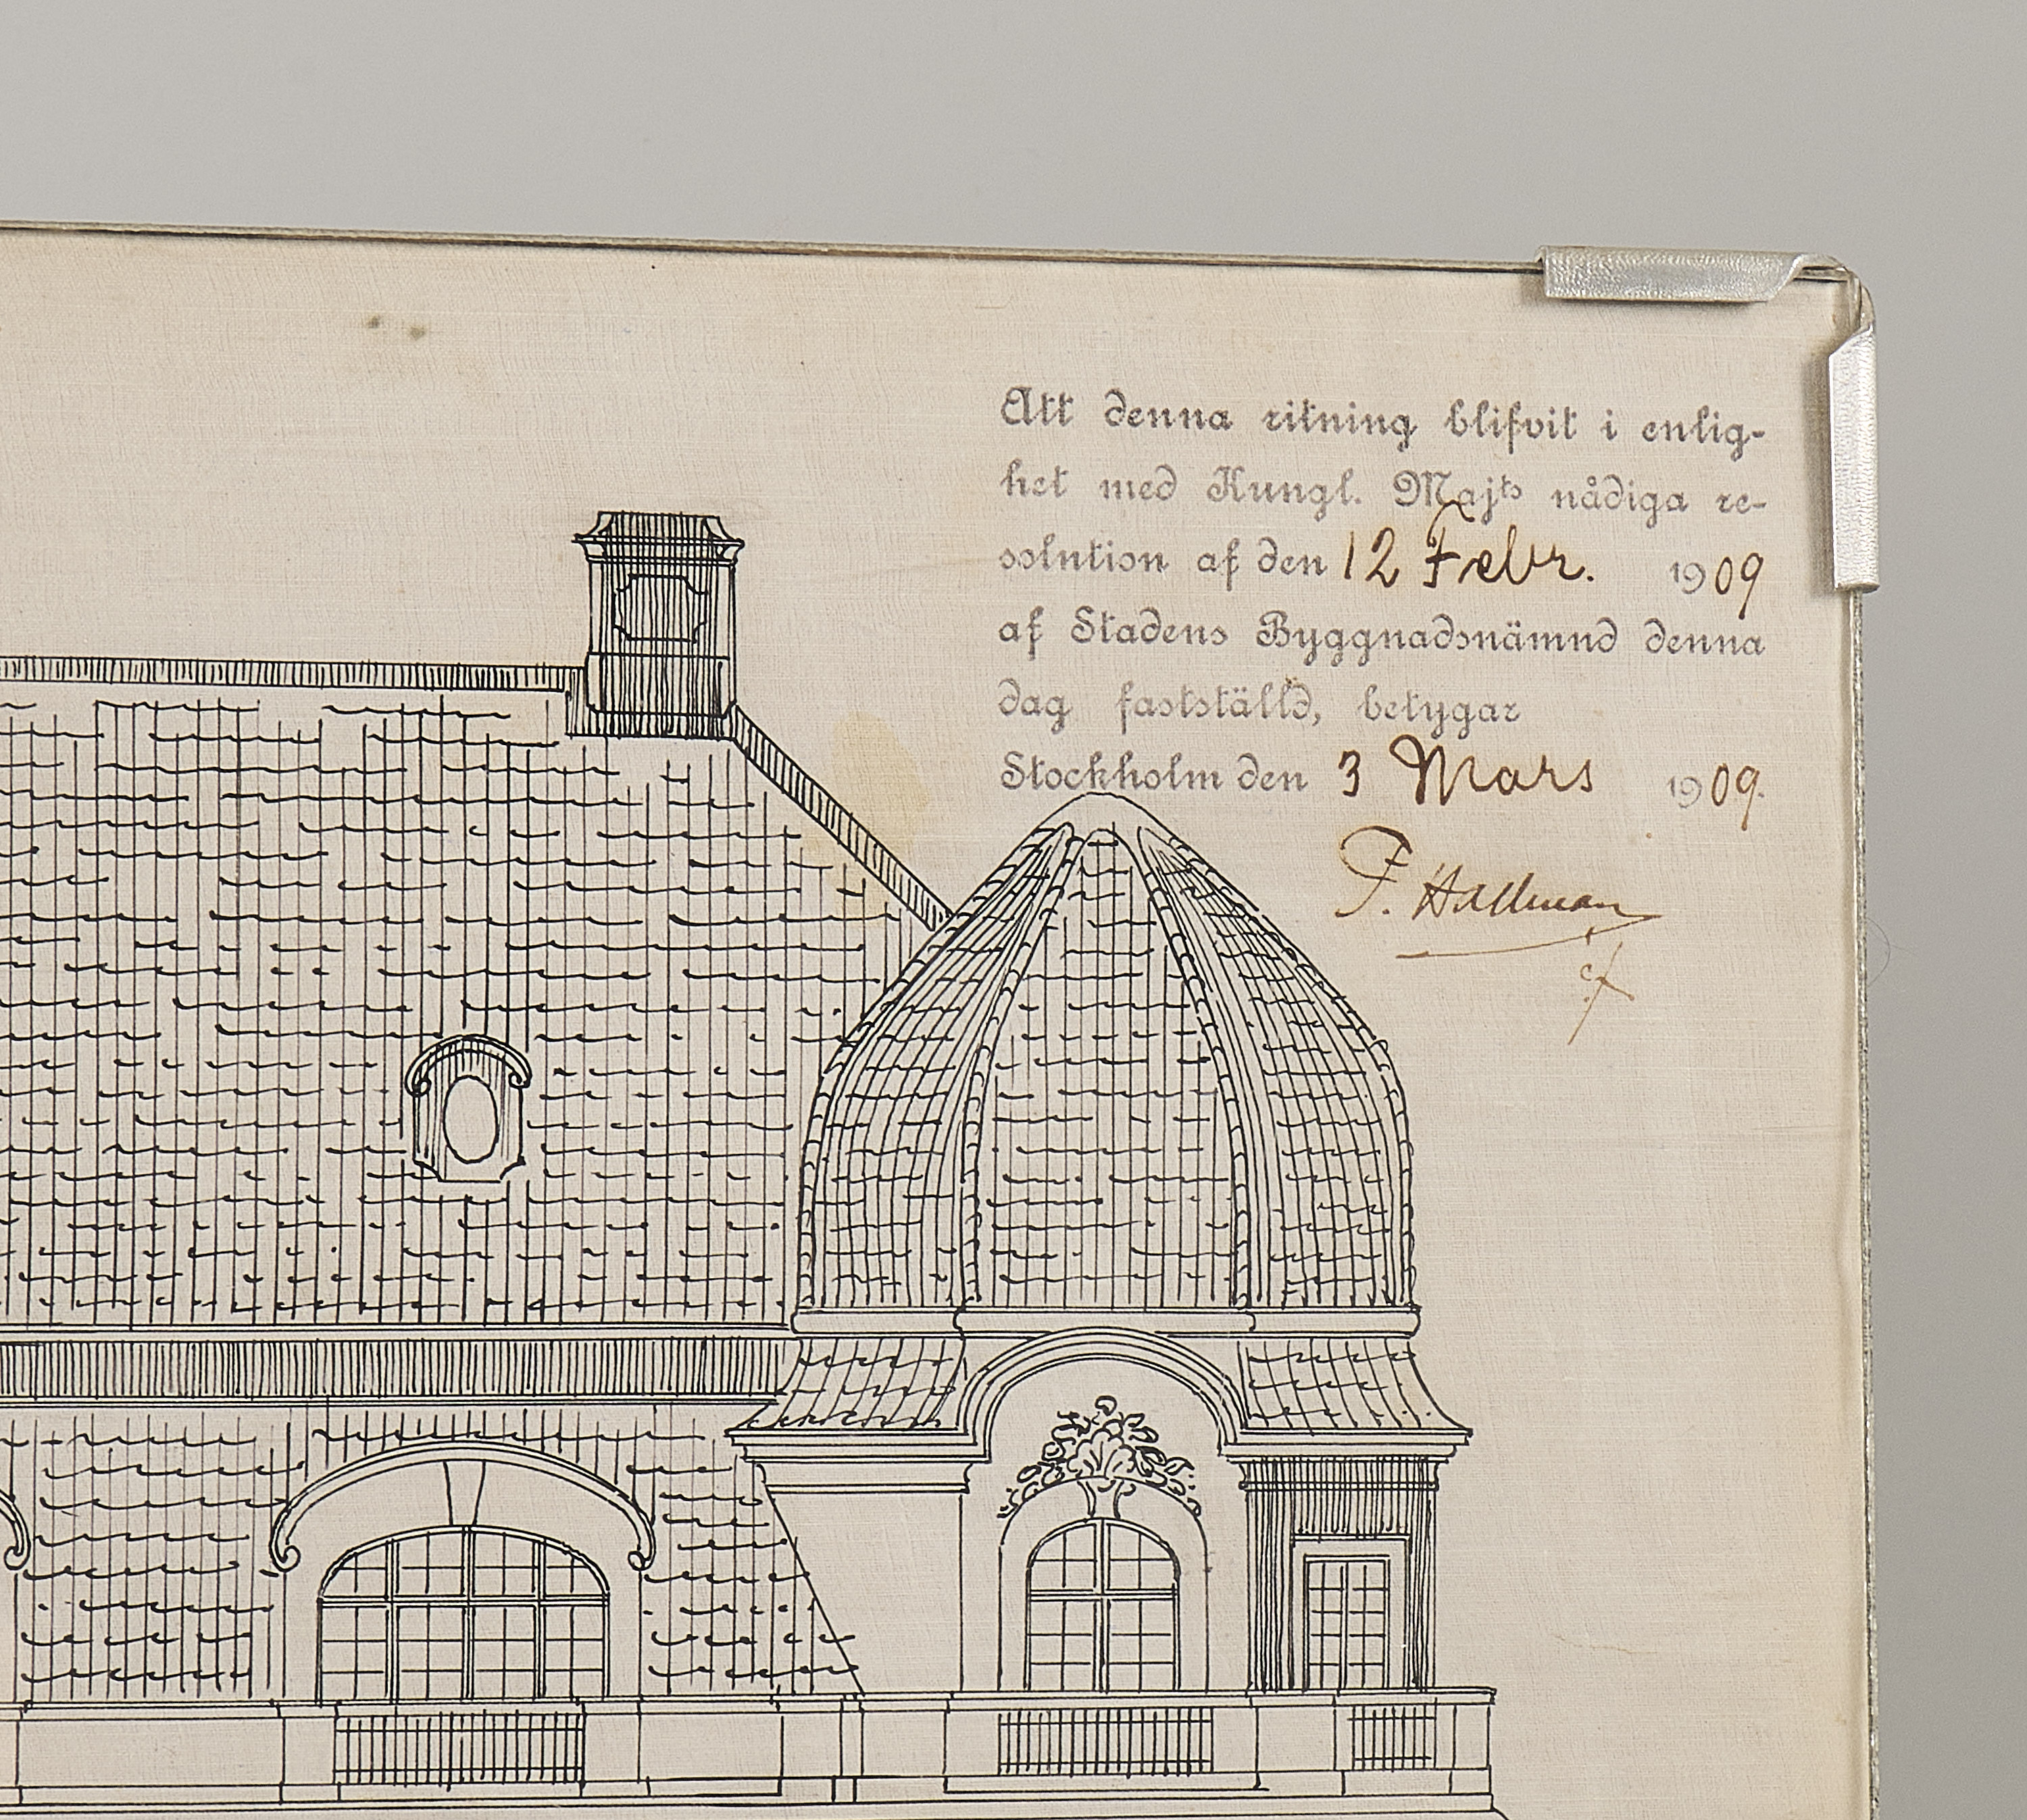 Att denna ritning blifvit i enlig-
het med Kungl. Majts nådiga re-
solution af den 12 Febr. 1909
af Stadens Byggnadsnämnd denna
dag fastställd, betygar
Stockholm den 3 Mars 1909.
P. Hallman